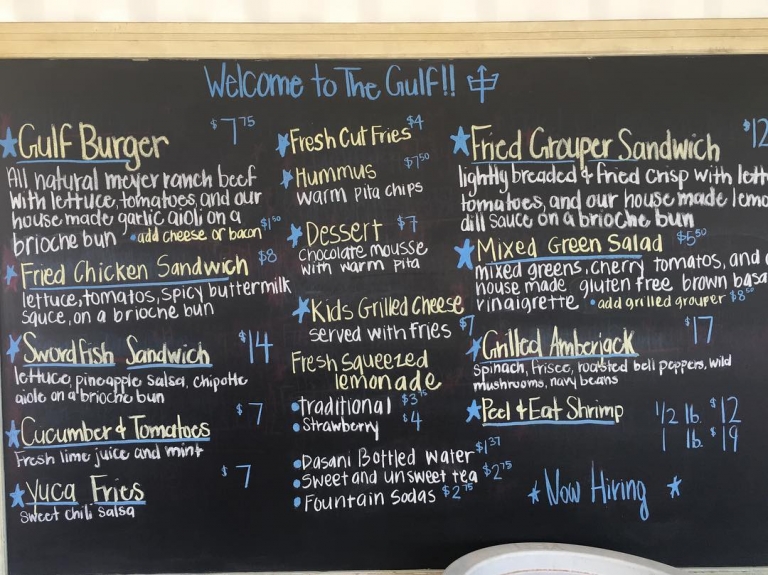 Welcome to The Gulf!!
Gulf Burger $7.75
All natural meyer ranch beef
with lettuce, tomatoes, and our
house made garlic aioli on a
brioche bun • add cheese or bacon $1.50
Fried Chicken Sandwich $8
lettuce, tomatos, spicy buttermilk
sauce, on a brioche bun
Swordfish Sandwich $14
lettuce, pineapple salsa, chipotle
aiole on a brioche bun
Cucumber & Tomatoes $7
Fresh lime juice and mint
Yuca Fries $7
Sweet chili salsa
Fresh Cut Fries $4
Hummus $7.50
warm pita chips
Dessert $7
chocolate mousse
with warm pita
Kids Grilled Cheese
served with fries $7
Fresh squeezed
lemonade
• traditional $3.75
• Strawberry $4
• Dasani Bottled water $1.37
• Sweet and unsweet tea $2.75
• Fountain Sodas $2.75
Fried Grouper Sandwich $12
lightly breaded & fried crisp with
tomatoes, and our house made
dill sauce on a brioche bun
Mixed Green Salad $5.50
mixed greens, cherry tomatoes, and
house made gluten free brown
vinaigrette • add grilled grouper $8.50
Grilled Amberjack $17
Spinach, frisee, roasted bell peppers, wild
mushrooms, navy beans
Peel & Eat Shrimp 1/2 lb. $12
1 lb. $19
Now Hiring